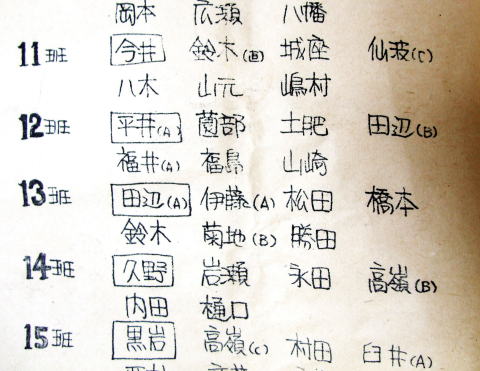 岡本 広瀬 八幡
11班 今井 鈴木(B) 城座 仙波(C)
八木 山元 嶋村
12班 平井(A) 薗部 土肥 田辺(B)
福井(A) 福島 山崎
13班 田辺(A) 伊藤(A) 松田 橋本
鈴木 菊地(B) 勝田
14班 久野 岩瀬 永田 高嶺(B)
内田 樋口
15班 黒岩 高嶺(C) 村田 臼井(A)